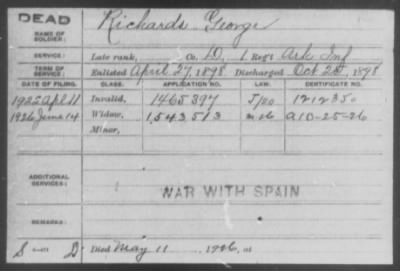 DEAD
NAME OF SOLDIER: Richards George
SERVICE: Late rank, Co. D, 1 Reg't Ark Inf
TERM OF SERVICE: Enlisted April 27, 1898 Discharged Oct 25, 1898
DATE OF FILING. CLASS. APPLICATION NO. LAW. CERTIFICATE NO.
1925 Apl 11 Invalid, 1465397 5/20 1212350
1926 June 14 Widow, 1543513 A10-25-26
Minor,
ADDITIONAL SERVICES:
WAR WITH SPAIN
REMARKS:
S D Died May 11 1926, at